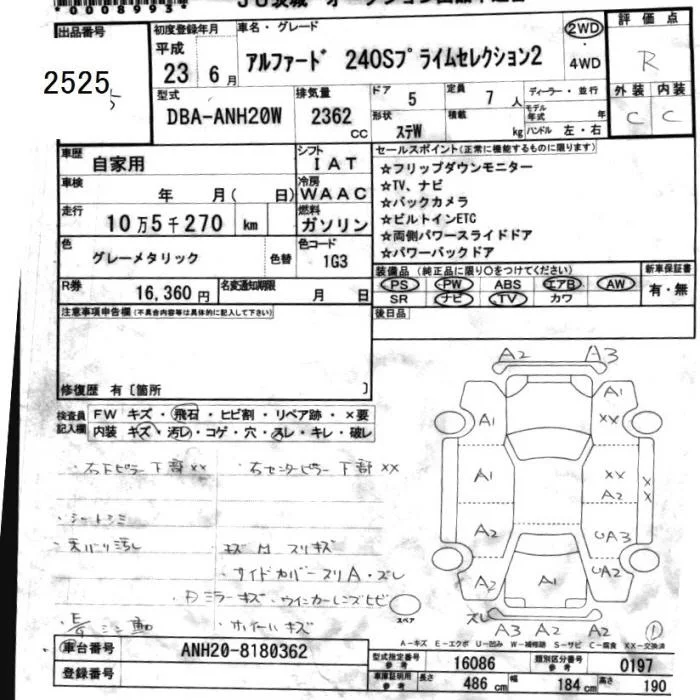 00089934
出品番号
2525
5
初度登録年月
平成
23 6月
車名・グレード
アルファード 240Sプライムセレクション2
2WD
4WD
評価点
R
外装 内装
C C
型式
DBA-ANH20W
排気量
2362
CC
ドア
5
形状
ステW
定員
7 人
積載
kg
ディーラー・並行
モデル年式 年
ハンドル 左・右
車歴
自家用
シフト
IAT
車検
年 月( 日)
冷房
WAAC
走行
10万5千270 km
燃料
ガソリン
色
グレーメタリック
色替
色コード
1G3
R券
16,360円
名変通知期限
月 日
セールスポイント(正常に機能するものに限ります)
☆フリップダウンモニター
☆TV、ナビ
☆バックカメラ
☆ビルトインETC
☆両側パワースライドドア
☆パワーバックドア
装備品(純正品に限り○をつけてください)
PS PW ABS エアB AW
SR ナビ TV カワ
新車保証書
有・無
後日品
注意事項申告欄(不具合内容等は具体的に記入して下さい)
修復歴 有〔箇所 〕
検査員記入欄
FW キズ・飛石・ヒビ割・リペア跡・×要
内装 キズ・汚レ・コゲ・穴・スレ・キレ・破レ
・右Fピラー下部XX ・右センターピラー下部XX
・シートシミ
・天バリ汚れ
・キズ M スリキズ
・サイドカバースリA・ズレ
ミラーキズ・ウインカーレンズヒビ
・ホイールキズ
A2 A3
A1 XX
A1 XX A2
XX
A2 UA3
A2 A1 UA2
スペア
ズレ
A3 A2 A2
1
A-キズ E-エクボ U-凹み W-補修跡 S-サビ C-腐食 XX-交換済
車台番号
ANH20-8180362
登録番号
型式指定番号
参考
16086
類別区分番号
参考
0197
車庫証明用
参考
長さ 486cm
幅 184cm
高さ 190